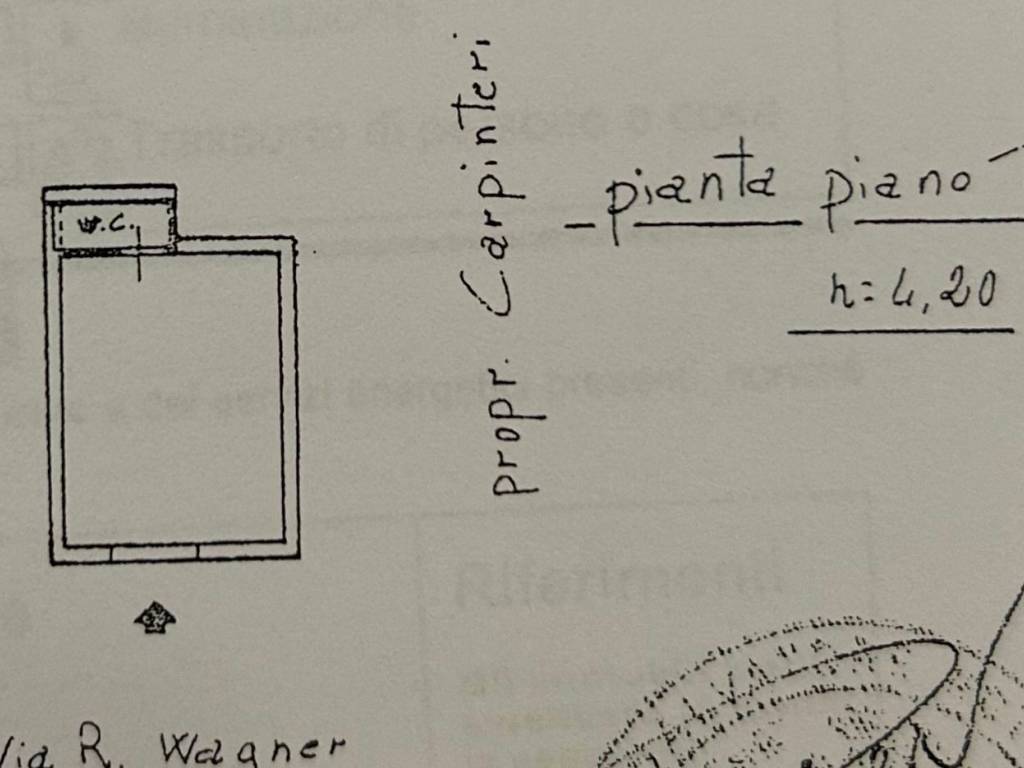 w.c.
propr. Carpinteri
- pianta piano
h= 4,20
Via R. Wagner
Riferimenti